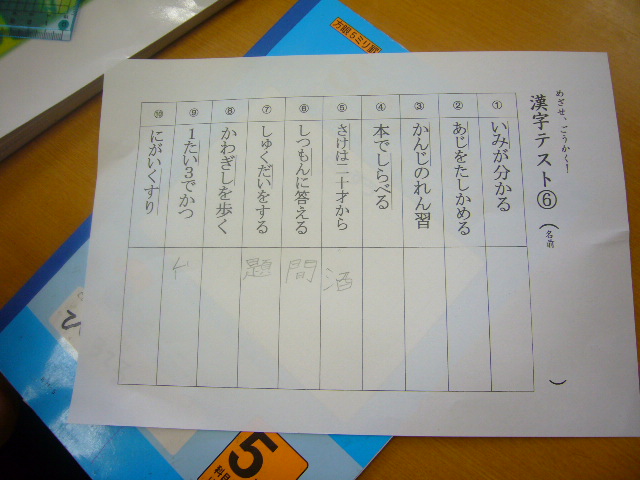 めざせ、ごうかく！
漢字テスト⑥（名前　　　）
① いみが分かる
② あじをたしかめる
③ かんじのれん習
④ 本でしらべる
⑤ さけは二十才から
酒
⑥ しつもんに答える
問
⑦ しゅくだいをする
題
⑧ かわぎしを歩く
⑨ 1たい3でかつ
⑩ にがいくすり
方眼5ミリ
ひ
5